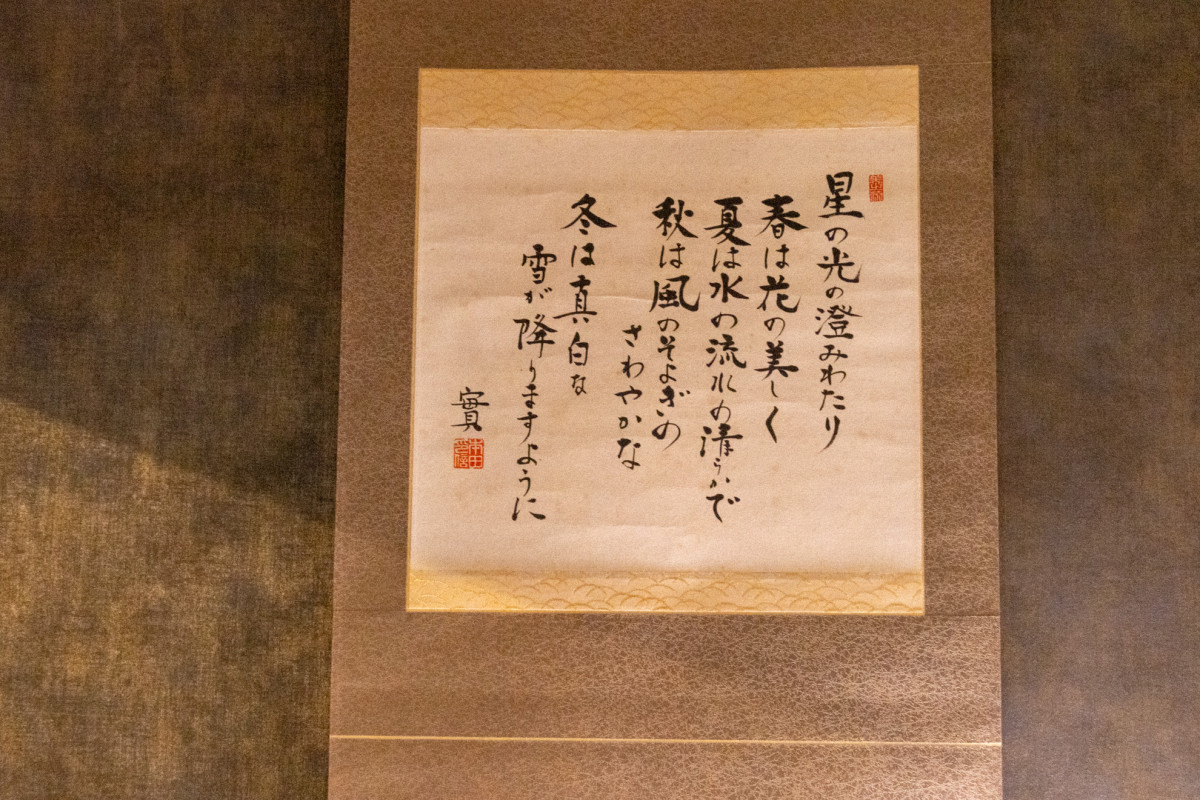 星の光の澄みわたり
春は花の美しく
夏は水の流れの清らかで
秋は風のそよぎの
さわやかな
冬は真白な
雪が降りますように
實